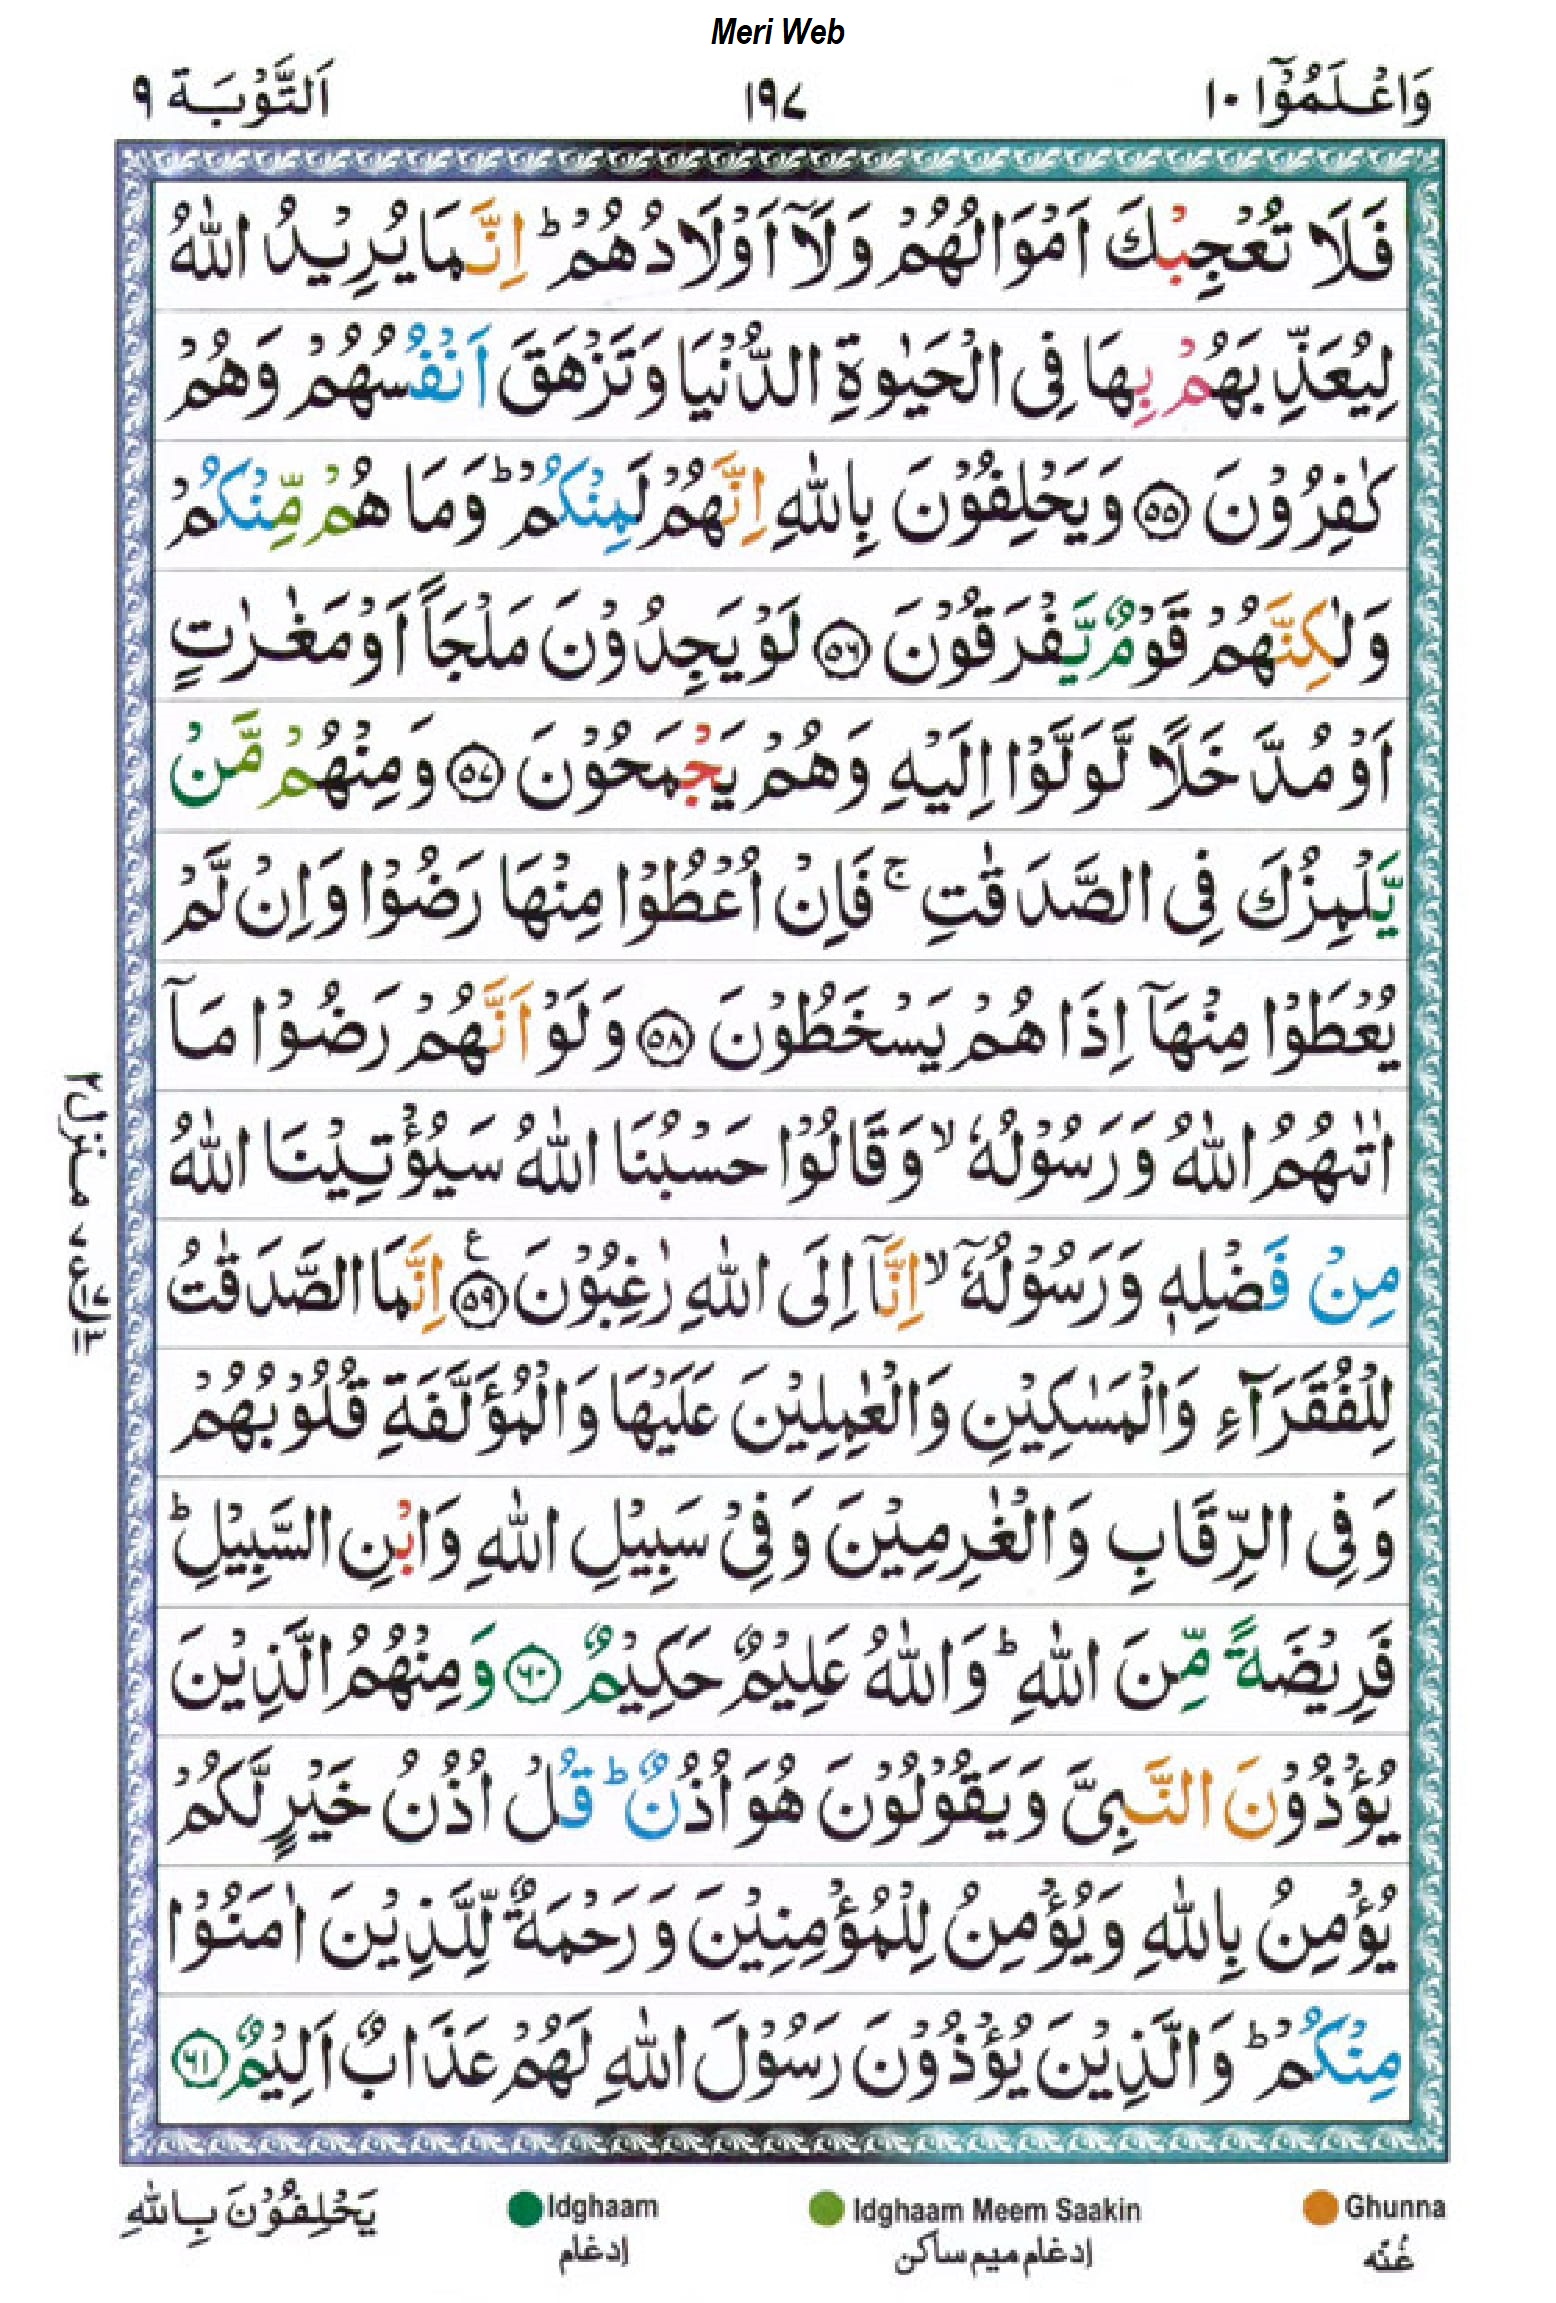 Meri Web
وَاعْلَمُوْۤا ١٠
١٩٧
اَلتَّوْبَة ٩
فَلَا تُعْجِبْكَ اَمْوَالُهُمْ وَلَاۤ اَوْلَادُهُمْ ؕ اِنَّمَا يُرِيْدُ اللّٰهُ
لِيُعَذِّبَهُمْ بِهَا فِى الْحَيٰوةِ الدُّنْيَا وَتَزْهَقَ اَنْفُسُهُمْ وَهُمْ
كٰفِرُوْنَ ۝٥٥ وَيَحْلِفُوْنَ بِاللّٰهِ اِنَّهُمْ لَمِنْكُمْ ؕ وَمَا هُمْ مِّنْكُمْ
وَلٰكِنَّهُمْ قَوْمٌ يَّفْرَقُوْنَ ۝٥٦ لَوْ يَجِدُوْنَ مَلْجَاً اَوْ مَغٰرٰتٍ
اَوْ مُدَّخَلًا لَّوَلَّوْا اِلَيْهِ وَهُمْ يَجْمَحُوْنَ ۝٥٧ وَمِنْهُمْ مَّنْ
يَّلْمِزُكَ فِى الصَّدَقٰتِ ۚ فَاِنْ اُعْطُوْا مِنْهَا رَضُوْا وَاِنْ لَّمْ
يُعْطَوْا مِنْهَاۤ اِذَا هُمْ يَسْخَطُوْنَ ۝٥٨ وَلَوْ اَنَّهُمْ رَضُوْا مَاۤ
اٰتٰىهُمُ اللّٰهُ وَرَسُوْلُهٗ ۙ وَقَالُوْا حَسْبُنَا اللّٰهُ سَيُؤْتِيْنَا اللّٰهُ
مِنْ فَضْلِهٖ وَرَسُوْلُهٗۤ ۙ اِنَّاۤ اِلَى اللّٰهِ رٰغِبُوْنَ ۝٥٩ ع اِنَّمَا الصَّدَقٰتُ
لِلْفُقَرَآءِ وَالْمَسٰكِيْنِ وَالْعٰمِلِيْنَ عَلَيْهَا وَالْمُؤَلَّفَةِ قُلُوْبُهُمْ
وَفِى الرِّقَابِ وَالْغٰرِمِيْنَ وَفِىْ سَبِيْلِ اللّٰهِ وَابْنِ السَّبِيْلِ ؕ
فَرِيْضَةً مِّنَ اللّٰهِ ؕ وَاللّٰهُ عَلِيْمٌ حَكِيْمٌ ۝٦٠ وَمِنْهُمُ الَّذِيْنَ
يُؤْذُوْنَ النَّبِىَّ وَيَقُوْلُوْنَ هُوَ اُذُنٌ ؕ قُلْ اُذُنُ خَيْرٍ لَّكُمْ
يُؤْمِنُ بِاللّٰهِ وَيُؤْمِنُ لِلْمُؤْمِنِيْنَ وَرَحْمَةٌ لِّلَّذِيْنَ اٰمَنُوْا
مِنْكُمْ ؕ وَالَّذِيْنَ يُؤْذُوْنَ رَسُوْلَ اللّٰهِ لَهُمْ عَذَابٌ اَلِيْمٌ ۝٦١
منزل ٢
يَحْلِفُوْنَ بِاللّٰهِ
Idghaam
إدغام
Idghaam Meem Saakin
إدغام ميم ساكن
Ghunna
غُنّه